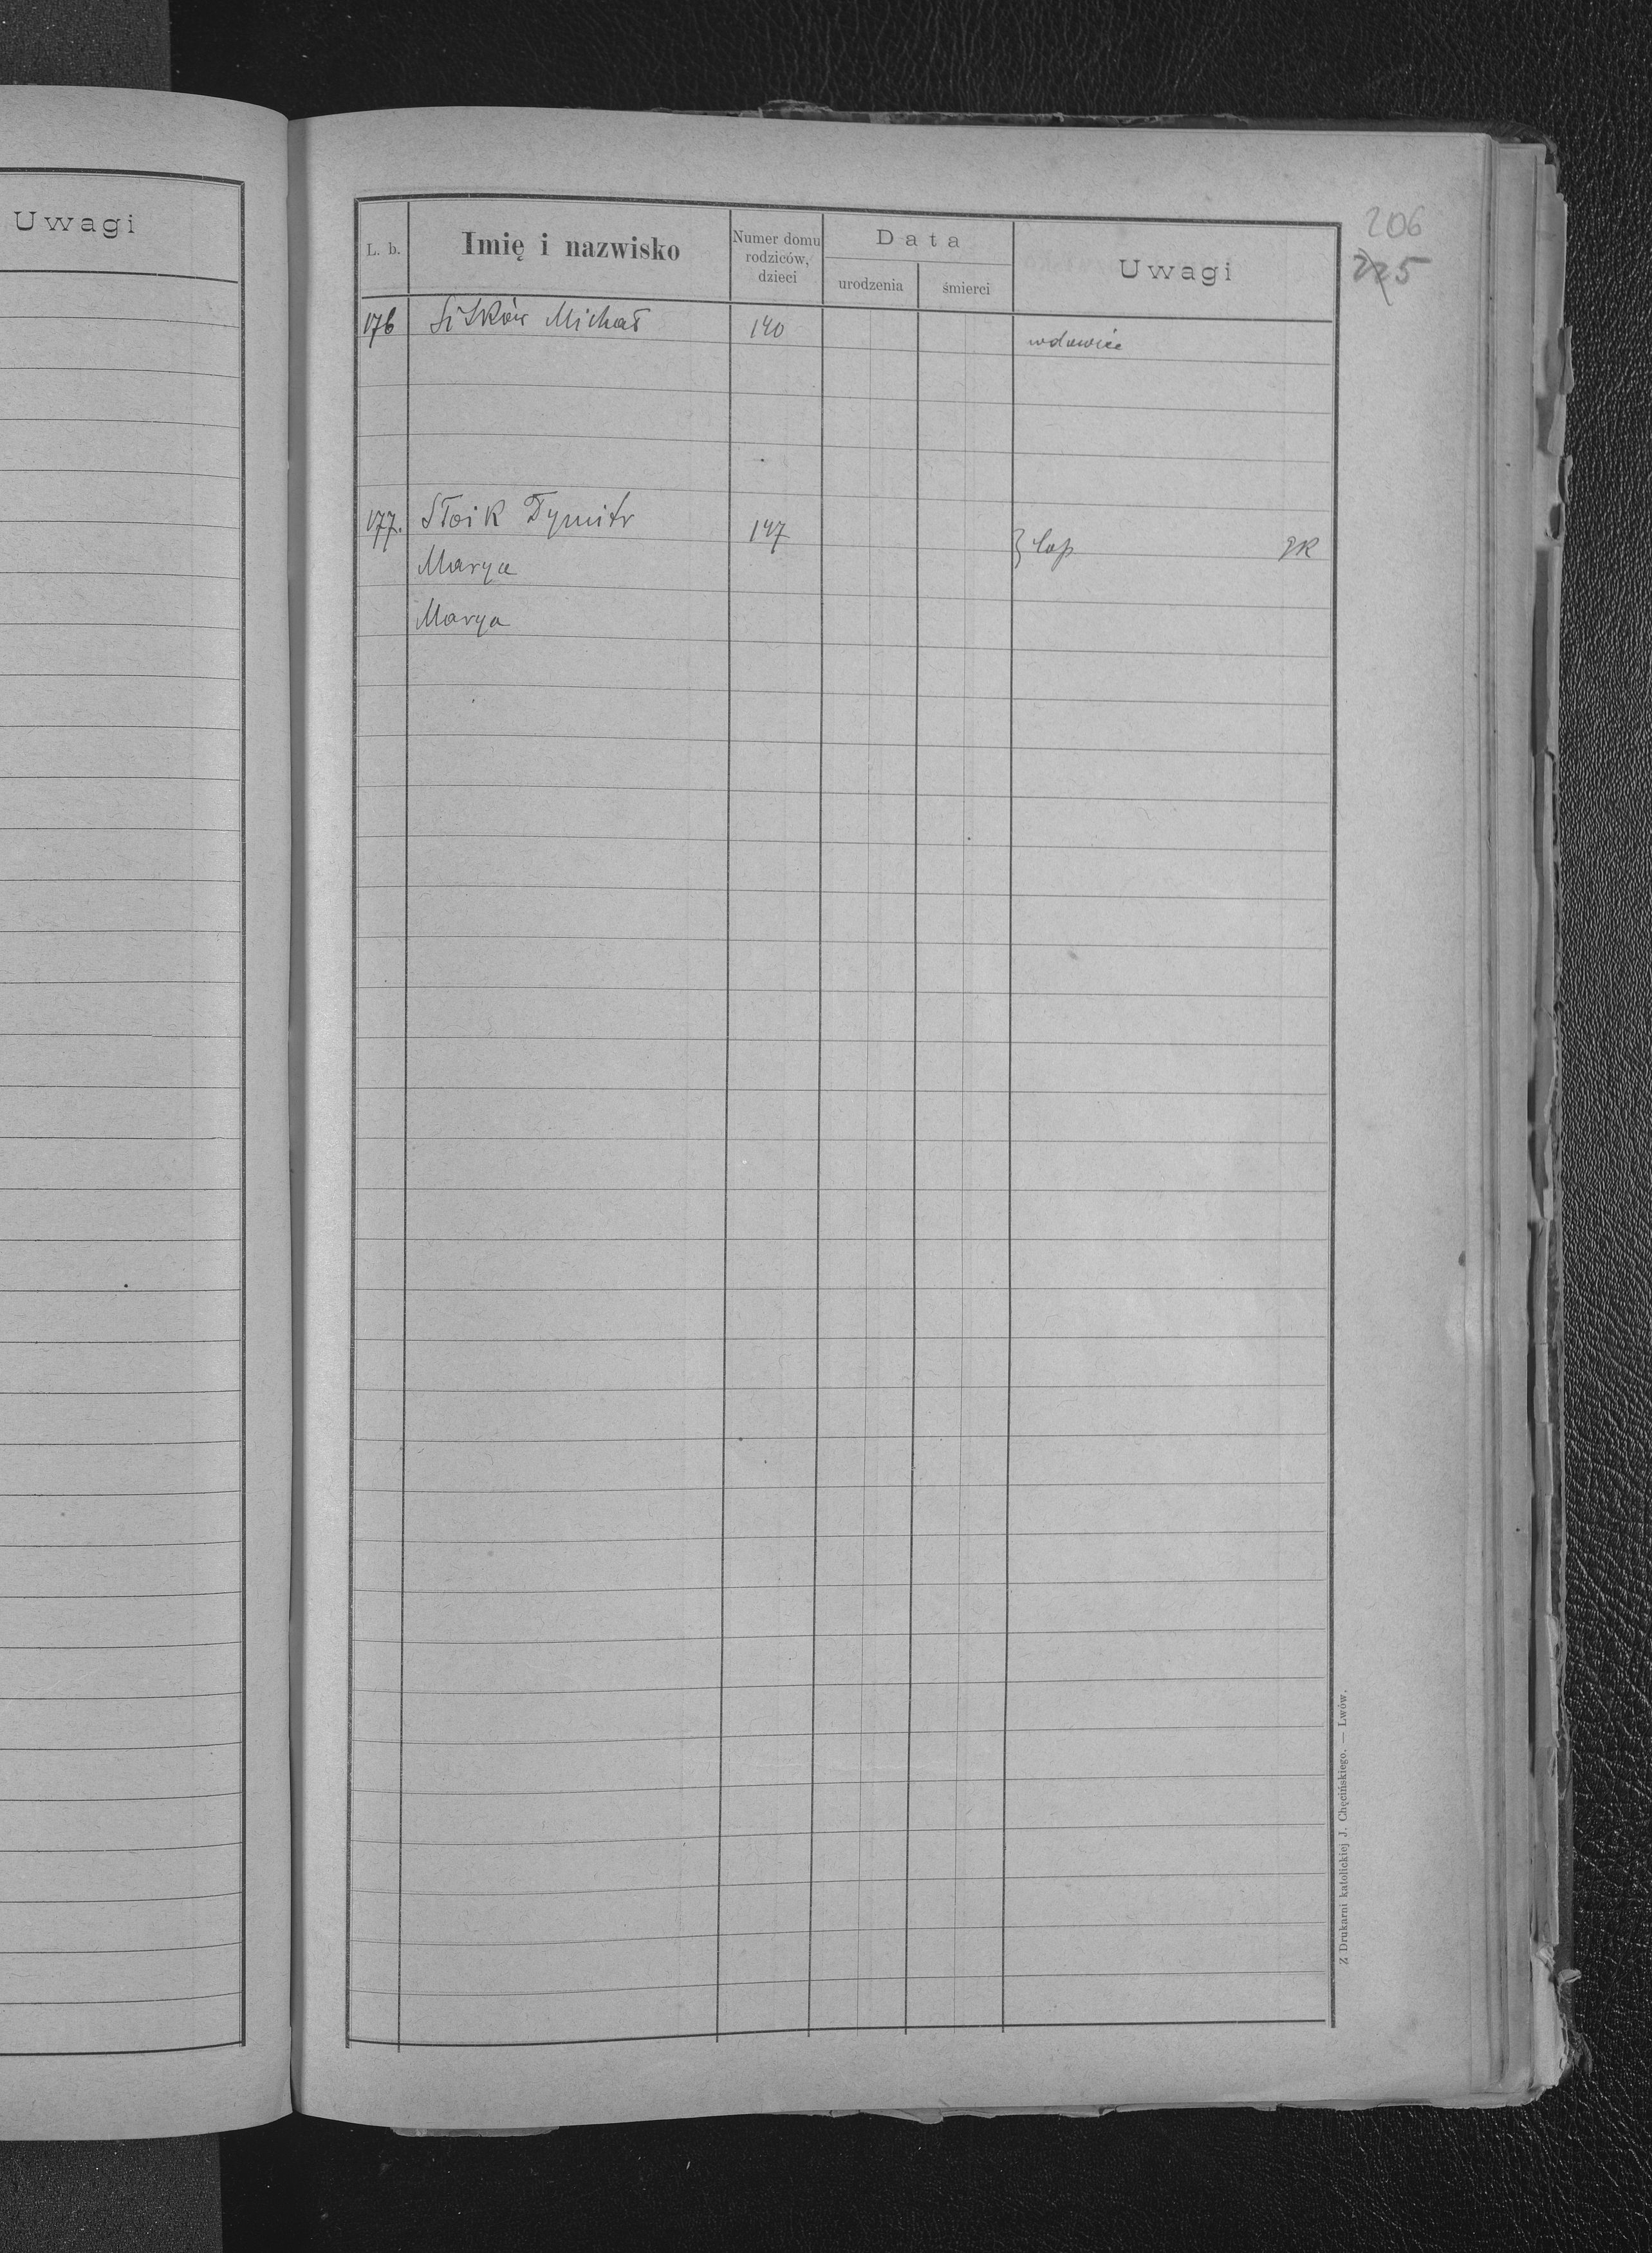 Uwagi
206
225
L. b.
Imię i nazwisko
Numer domu rodziców, dzieci
Data
urodzenia
śmierci
Uwagi
176 Michał 140 wdowiec
177. Słoik Dymitr 147 gk
Marya
Marya
Z Drukarni katolickiej J. Chęcińskiego. — Lwów.